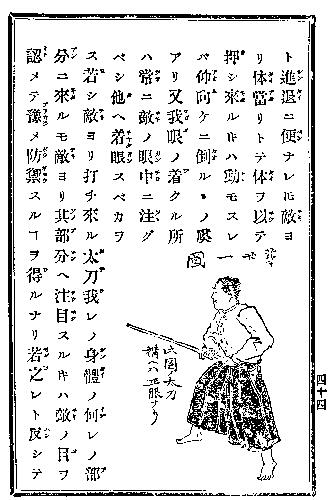 ト進退ニ便ナレ𪜈敵ヨ
リ体當リトテ体ヲ以テ
押シ來ルトキハ動モスレ
バ仰向ケニ倒ルヽノ
アリ又我眼ノ着クル所
ハ常ニ敵ノ眼中ニ注グ
ベシ他ヘ着眼スベカラ
ス若シ敵ヨリ打チ來ル太刀我レノ身體ノ何レノ部
分ニ來ルモ敵ヨリ其部分ヘ注目スルトキハ敵ノ目ヲ
認メテ豫メ防禦スルヿヲ得ルナリ若之レト反シテ
一圖
此圖太刀
構ヘハ正眼ナリ
四十四